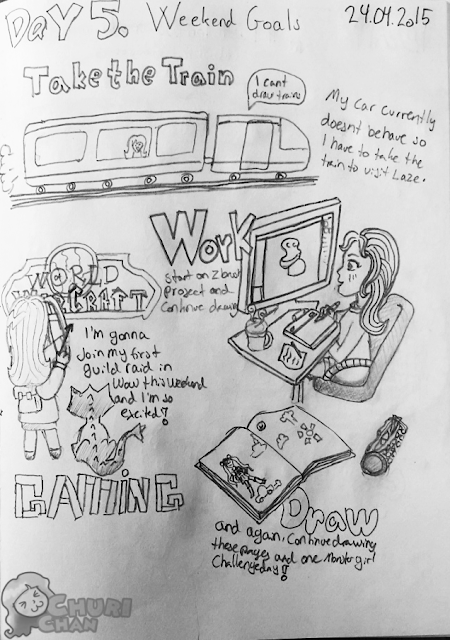 DaY 5. Weekend Goals 24.04.2015
Take the Train
I can't
draw trains
My car currently
doesnt behave so
I have to take the
train to visit Laze.
WORLD
WARCRAFT
Work
Start on Zbrush
project and
Continue drawing
I'm gonna
Join my first
guild raid in
Wow this weekend
and I'm so
excited!
GAMING
Draw
and again, Continue drawing
these pages and one Monster girl
Challenge day!
CHURI
CHAN